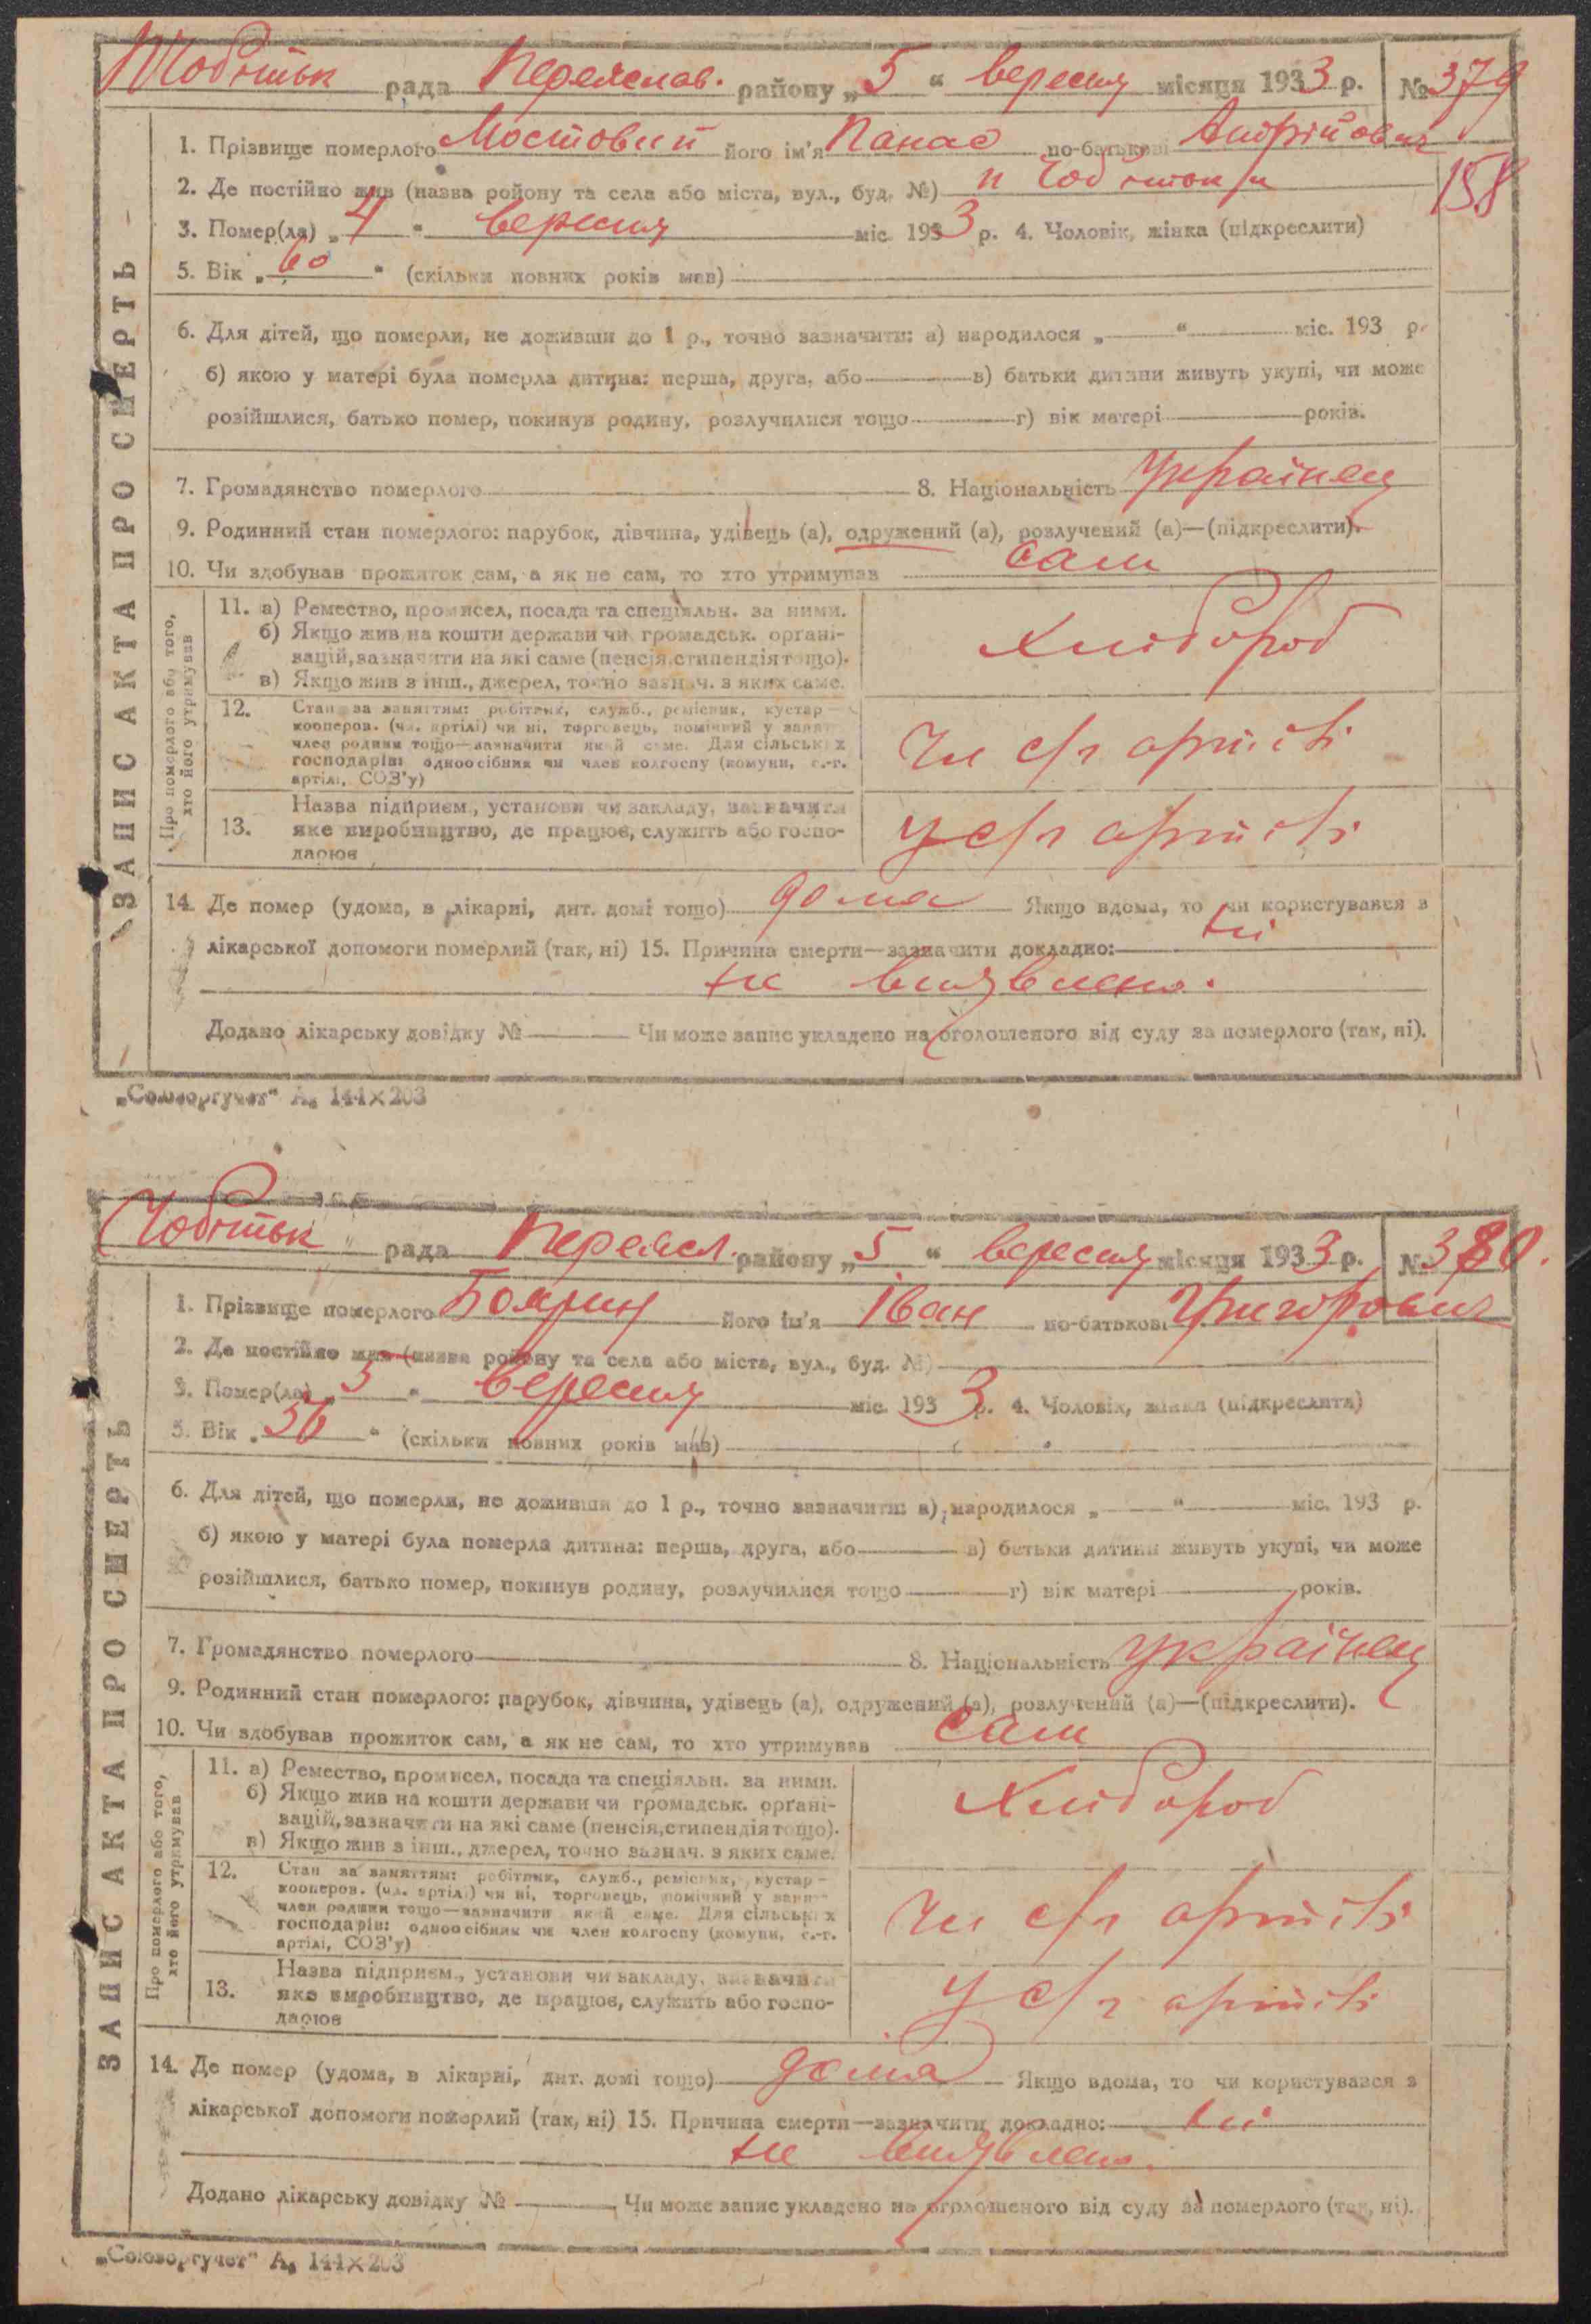 Чобітьк рада Переяслав. району „5“ вересня місяця 1933 р. № 379
1. Прізвище померлого Мостовий його ім'я Панас по-батькові Андрійович
158
2. Де постійно жив (назва ройону та села або міста, вул., буд. №)
3. Помер(ла) „4“ вересня міс. 1933 р. 4. Чоловік, жінка (підкреслити)
5. Вік „60“ (скільки повних років мав)
6. Для дітей, що померли, не доживши до 1 р., точно зазначити: а) народилося „ “ міс. 193 р.
б) якою у матері була померла дитина: перша, друга, або в) батьки дитини живуть укупі, чи може
розійшлися, батько помер, покинув родину, розлучилися тощо г) вік матері років.
7. Громадянство померлого 8. Національність Українец
9. Родинний стан померлого: парубок, дівчина, удівець (а), одружений (а), розлучений (а)—(підкреслити).
10. Чи здобував прожиток сам, а як не сам, то хто утримував сам
ЗАПИС АКТА ПРО СМЕРТЬ
Про померлого або того, хто його утримував
11. а) Ремество, промисел, посада та спеціяльн. за ними.
б) Якщо жив на кошти держави чи громадськ. орґані-
зацій, зазначити на які саме (пенсія, стипендія тощо).
в) Якщо жив з інш., джерел, точно зазнач. з яких саме.
Хлібороб
12. Стан за заняттям: робітник, служб., ремісник, кустар—
кооперов. (чл. артілі) чи ні, торговець, помічний у занят-
член родини тощо—зазначити який саме. Для сільських
господарів: одноосібник чи член колгоспу (комуни, с.-г.
артілі, СОЗ'у)
Чл с/г артілі
13. Назва підприєм., установи чи закладу, зазначити
яке виробництво, де працює, служить або госпо-
дарює
у с/г артілі
14. Де помер (удома, в лікарні, дит. домі тощо) дома Якщо вдома, то чи користувався з
лікарської допомоги померлий (так, ні) 15. Причина смерти—зазначити докладно: ні
не виявлено.
Додано лікарську довідку № Чи може запис укладено на оголошеного від суду за померлого (так, ні).
„Союзоргучет“ А₅ 144×203
Чобітьк рада Переясл. району „5“ вересня місяця 1933 р. № 380.
1. Прізвище померлого Боярин його ім'я Іван по-батькові Григорович
2. Де постійно жив (назва ройону та села або міста, вул., буд. №)
3. Помер(ла) „5“ вересня міс. 1933 р. 4. Чоловік, жінка (підкреслити)
5. Вік „56“ (скільки повних років мав)
6. Для дітей, що померли, не доживши до 1 р., точно зазначити: а) народилося „ “ міс. 193 р.
б) якою у матері була померла дитина: перша, друга, або в) батьки дитини живуть укупі, чи може
розійшлися, батько помер, покинув родину, розлучилися тощо г) вік матері років.
7. Громадянство померлого 8. Національність українец
9. Родинний стан померлого: парубок, дівчина, удівець (а), одружений (а), розлучений (а)—(підкреслити).
10. Чи здобував прожиток сам, а як не сам, то хто утримував сам
ЗАПИС АКТА ПРО СМЕРТЬ
Про померлого або того, хто його утримував
11. а) Ремество, промисел, посада та спеціяльн. за ними.
б) Якщо жив на кошти держави чи громадськ. орґані-
зацій, зазначити на які саме (пенсія, стипендія тощо).
в) Якщо жив з інш., джерел, точно зазнач. з яких саме.
Хлібороб
12. Стан за заняттям: робітник, служб., ремісник, кустар—
кооперов. (чл. артілі) чи ні, торговець, помічний у занят-
член родини тощо—зазначити який саме. Для сільських
господарів: одноосібник чи член колгоспу (комуни, с.-г.
артілі, СОЗ'у)
Чл с/г артілі
13. Назва підприєм., установи чи закладу, зазначити
яке виробництво, де працює, служить або госпо-
дарює
у с/г артілі
14. Де помер (удома, в лікарні, дит. домі тощо) дома Якщо вдома, то чи користувався з
лікарської допомоги померлий (так, ні) 15. Причина смерти—зазначити докладно: ні
не виявлено.
Додано лікарську довідку № Чи може запис укладено на оголошеного від суду за померлого (так, ні).
„Союзоргучет“ А₅ 144×203